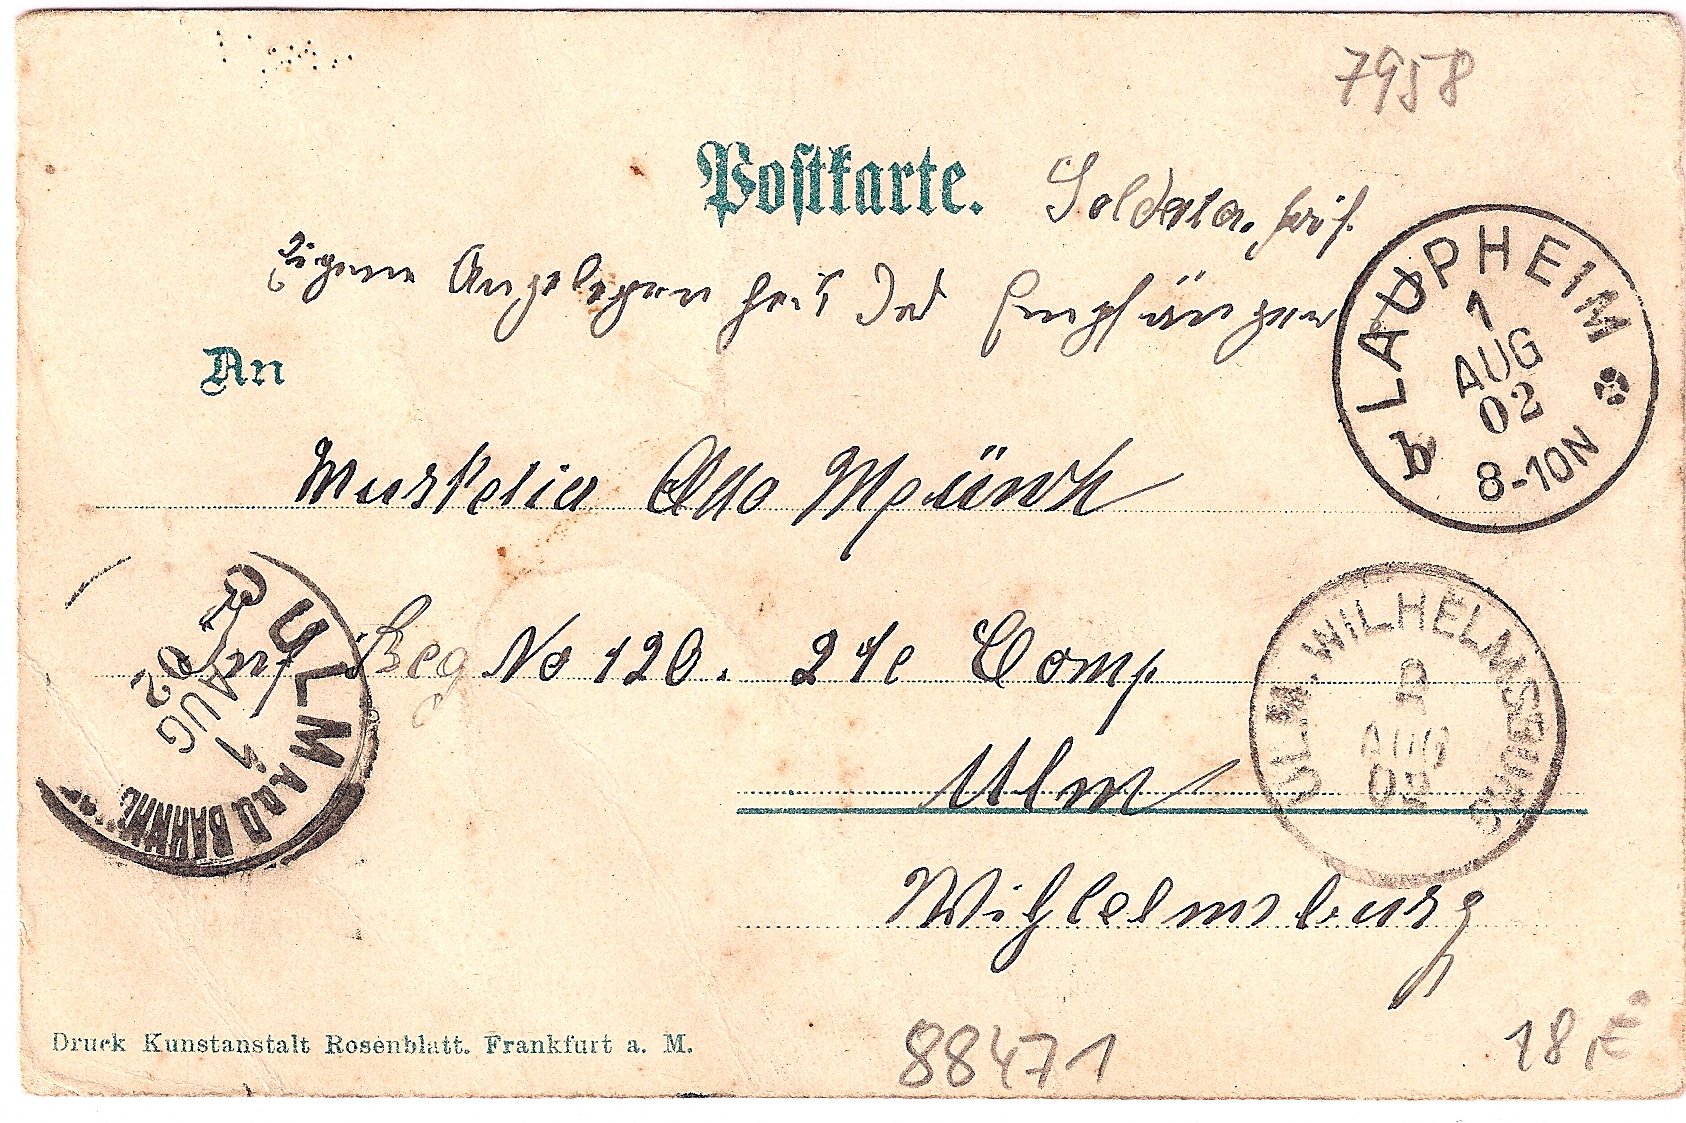 7958
Postkarte.
Soldatenbrief.
Eigene Angelegenheit des Empfängers
LAUPHEIM
1
AUG
02
8-10N
b
An
Musketier Otto Münch
Inf Reg No 120. 2te Comp
Ulm
Wilhelmsburg
ULM A.D.D BAHNHOF
1
AUG
02
ULM. WILHELMSBURG
2
AUG
02
Druck Kunstanstalt Rosenblatt. Frankfurt a. M.
88471
18,-